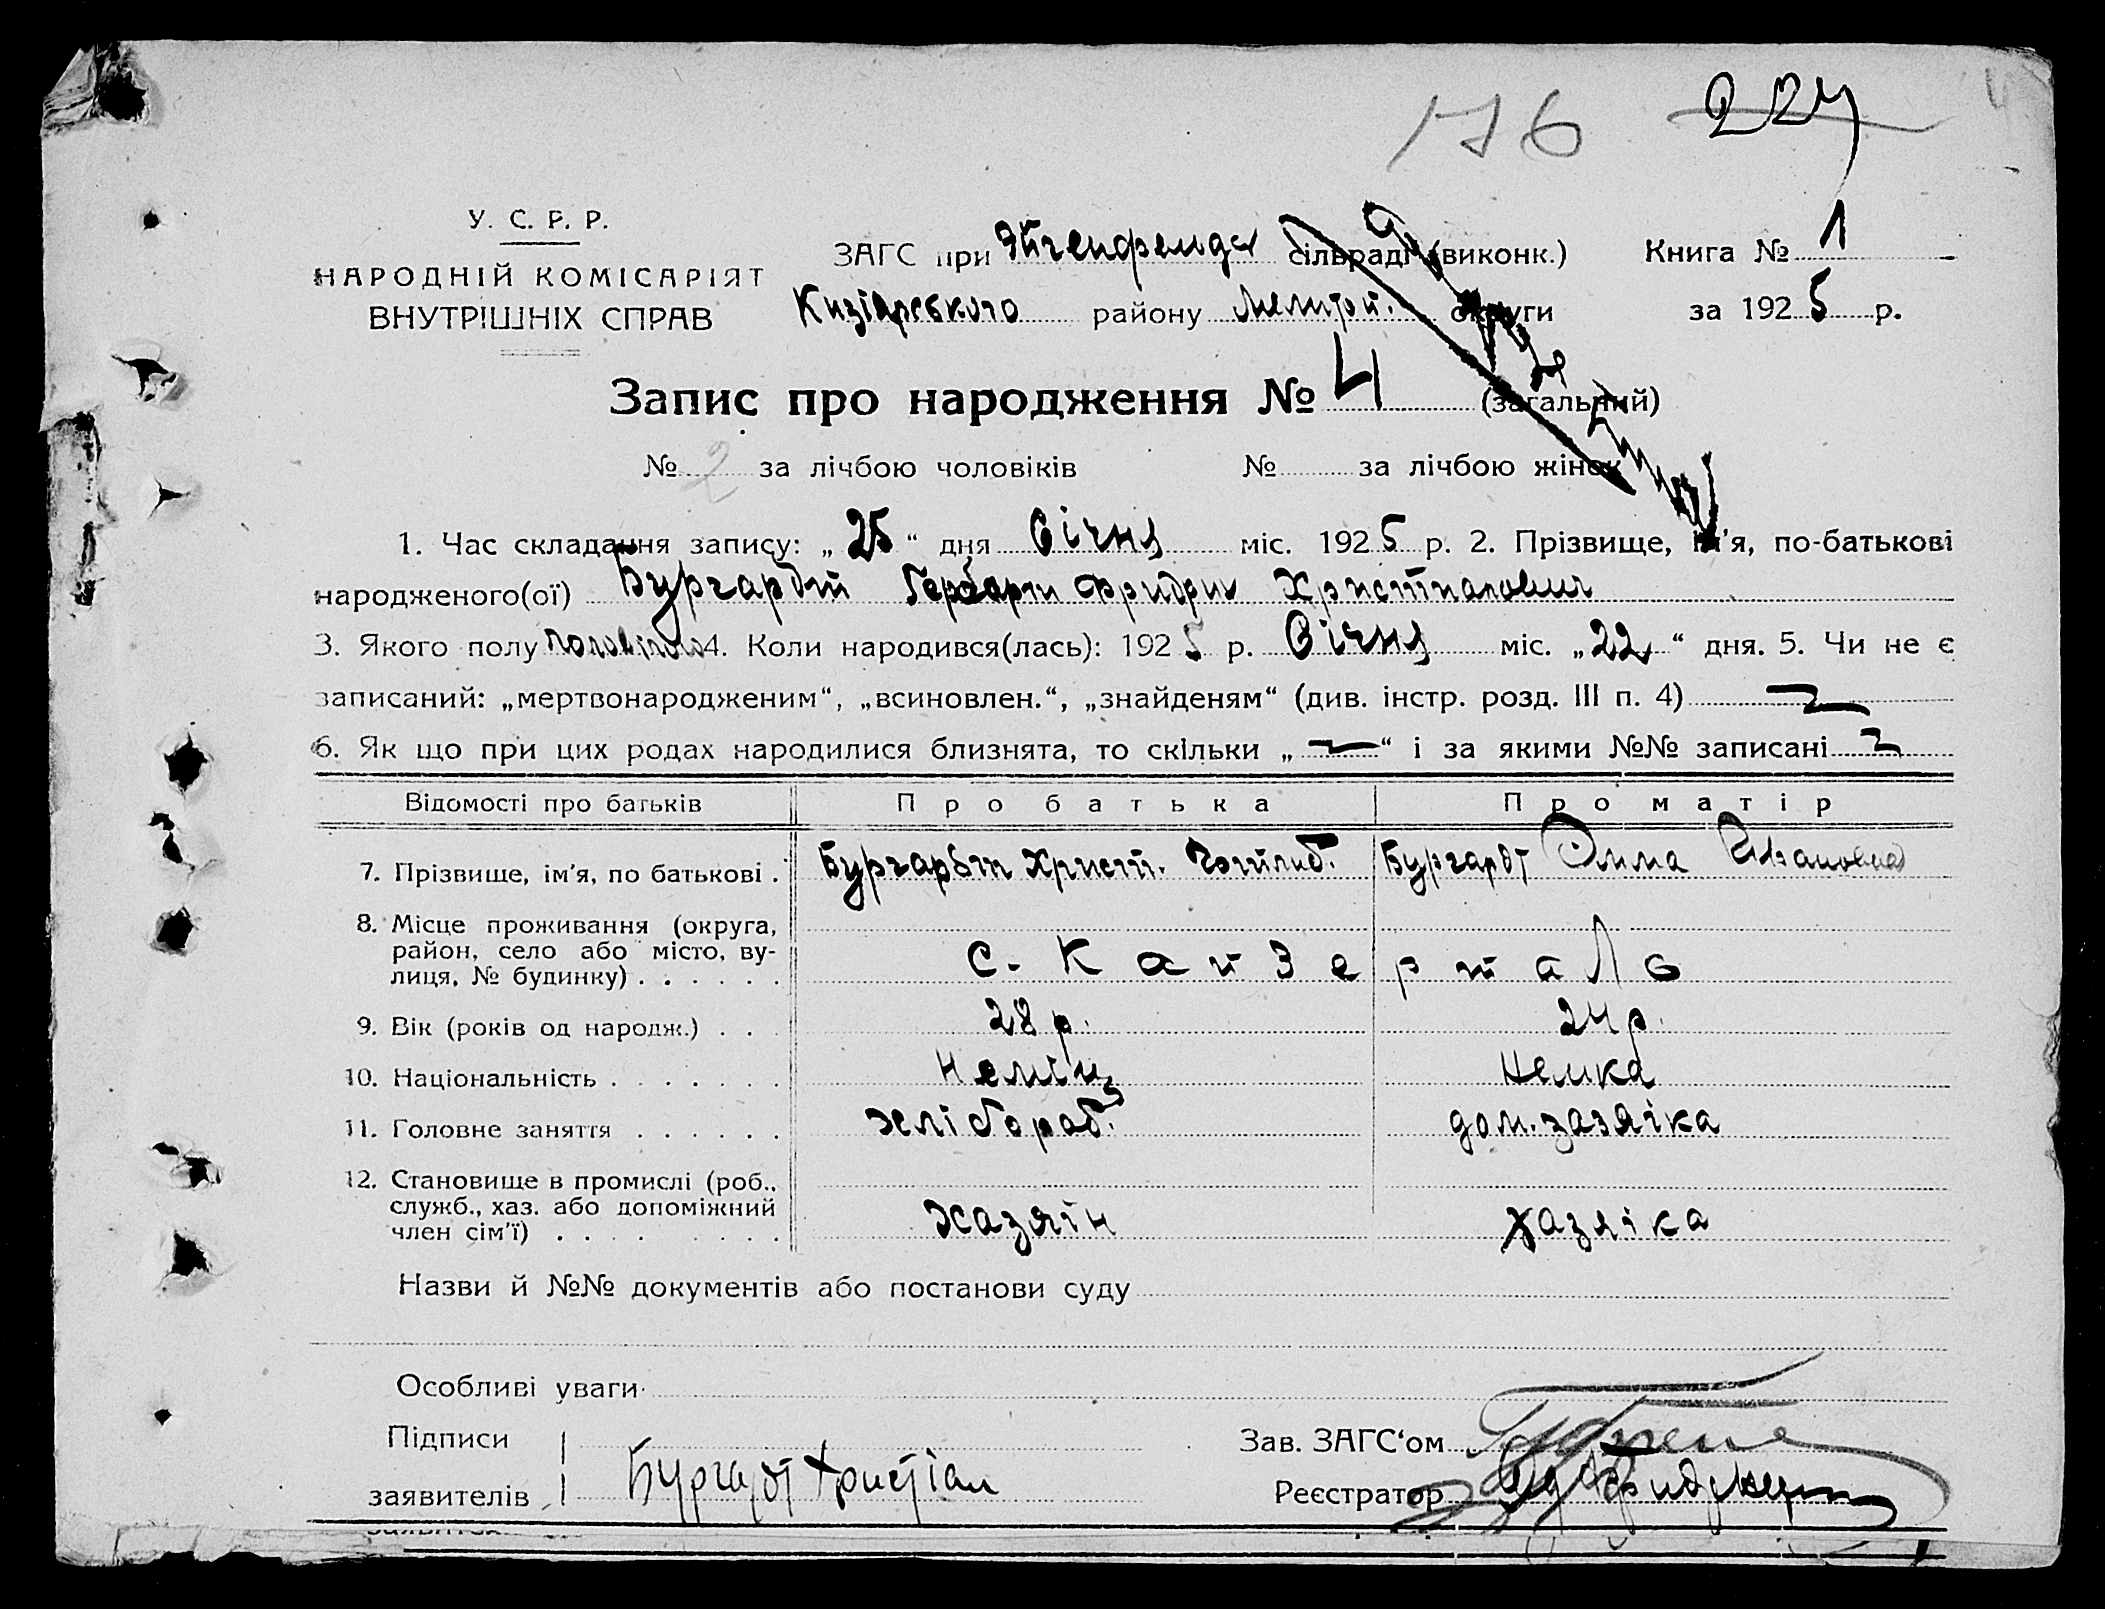 176 227
У. С. Р. Р.
НАРОДНІЙ КОМІСАРІЯТ
ВНУТРІШНІХ СПРАВ
ЗАГС при Эйгенфельдс сільраді (виконк.) Книга № 1
Кизіярського району Мелитоп. округи за 1925 р.
Запис про народження № 4 (загальний)
№ 2 за лічбою чоловіків № за лічбою жінок
1. Час складання запису: „25“ дня Січня міс. 1925 р. 2. Прізвище, ім'я, по-батькові
народженого(ої) Бургардт Герберт Фридрих Христианович
3. Якого полу чоловічого 4. Коли народився(лась): 1925 р. Січня міс. „22“ дня. 5. Чи не є
записаний: „мертвонародженим“, „всиновлен.“, „знайденям“ (див. інстр. розд. III п. 4)
6. Як що при цих родах народилися близнята, то скільки „—“ і за якими №№ записані
Відомості про батьків Про батька Про матір
7. Прізвище, ім'я, по батькові . Бургардт Христ. Готлиб. Бургардт Эмма Ивановна
8. Місце проживання (округа,
район, село або місто, ву-
лиця, № будинку) . . . . . . с. Кайзерталь
9. Вік (років од народж.) . . . 28 р. 24 р.
10. Національність . . . . . . . Неміць Немка
11. Головне заняття . . . . . . хлібороб. дом. хазяіка
12. Становище в промислі (роб.,
служб., хаз. або допоміжний
член сім'ї) . . . . . . . . Хазяін Хазяіка
Назви й №№ документів або постанови суду
Особливі уваги
Підписи Зав. ЗАГС'ом
заявителів Бургардт Христіан Реєстратор